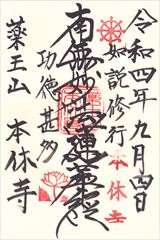 令和四年九月四日
如説修行
本休寺
南無妙法蓮華経
功徳甚多
薬王山 本休寺